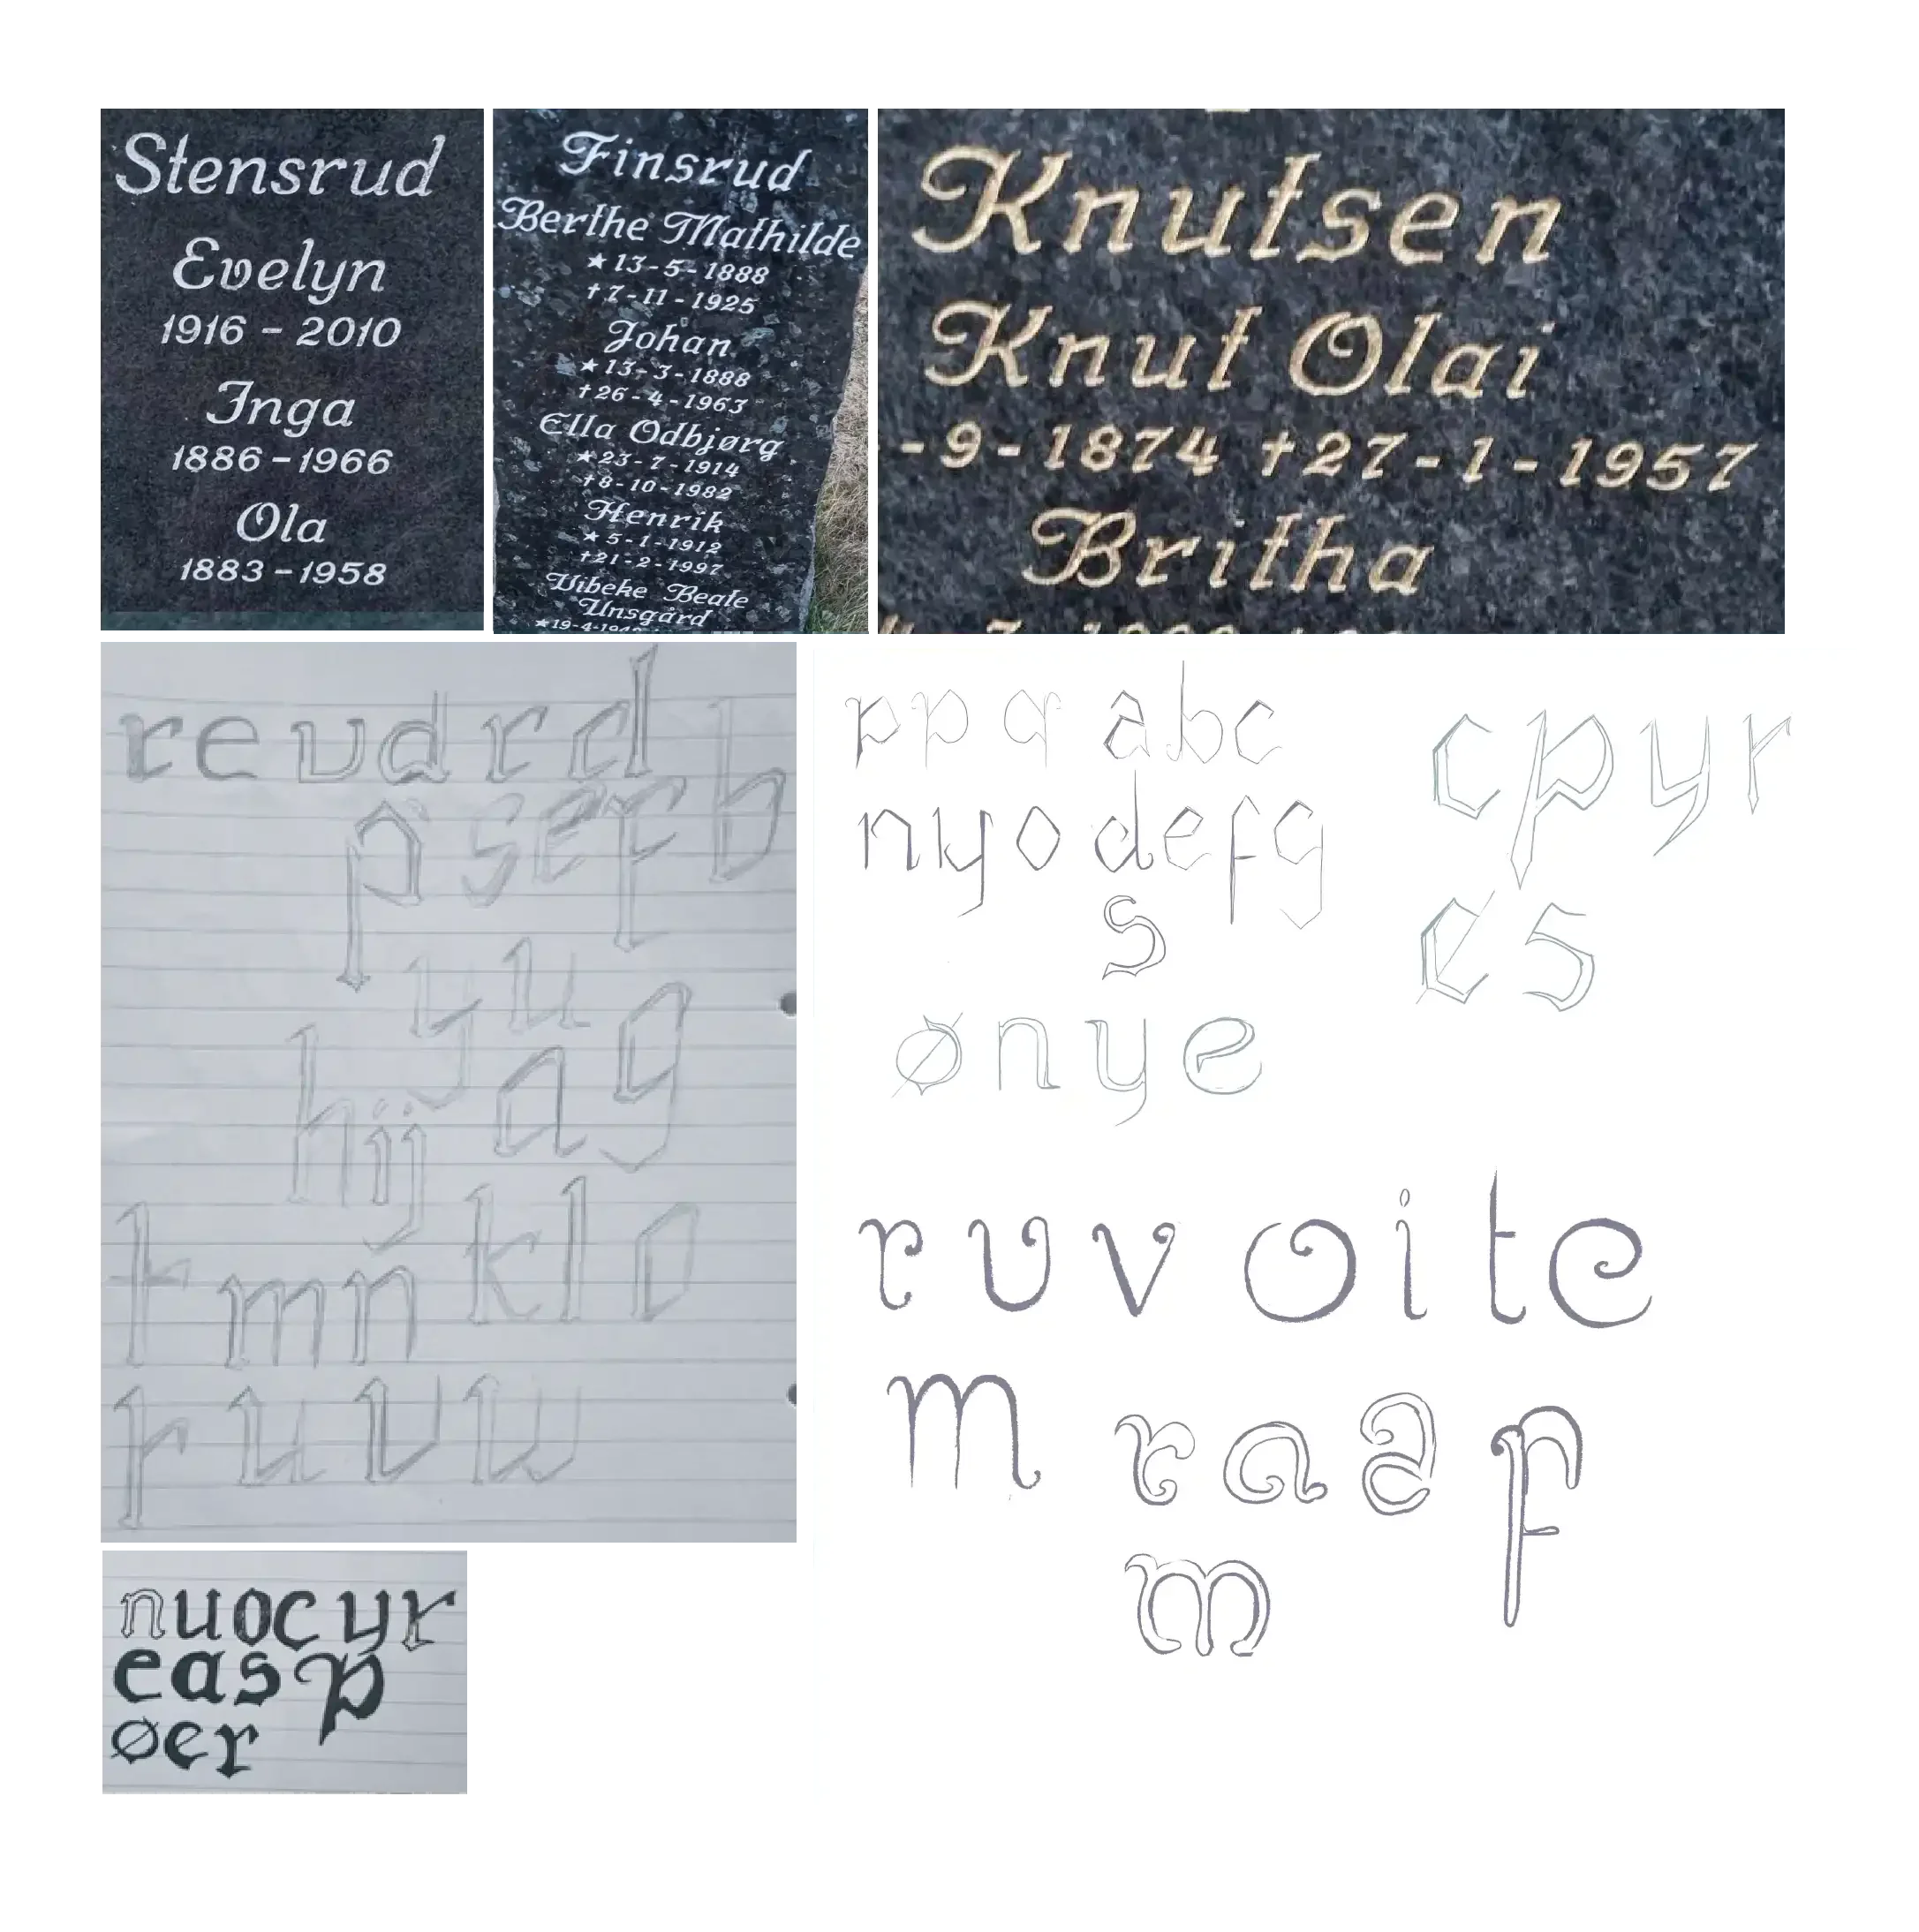 Stensrud
Evelyn
1916 - 2010
Inga
1886 - 1966
Ola
1883 - 1958
Finsrud
Berthe Mathilde
★13-5-1888
†7-11-1925
Johan
★13-3-1888
†26-4-1963
Ella Odbjørg
★23-7-1914
†8-10-1982
Henrik
★5-1-1912
†21-2-1997
Vibeke Beate
Unsgård
★19-4-194
Knutsen
Knut Olai
-9-1874 †27-1-1957
Britha
r e v a r d b
p s e f
y u
h i j a g
r m n k l o
r u v w
n u o c y r
e a s p
ø e r
p p q a b c
n y o d e f g
s
ø n y e
c p y r
e s
r u v o i t e
m r a a f
m